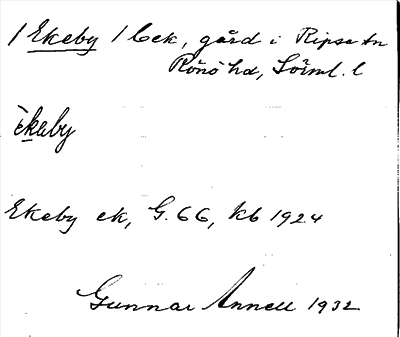 1 Ekeby 1 Cek, gård i Ripsa sn
Rönö hd, Sörml. l
èkeby
Ekeby ek, G. 66, kb 1924
Gunnar Annell 1932